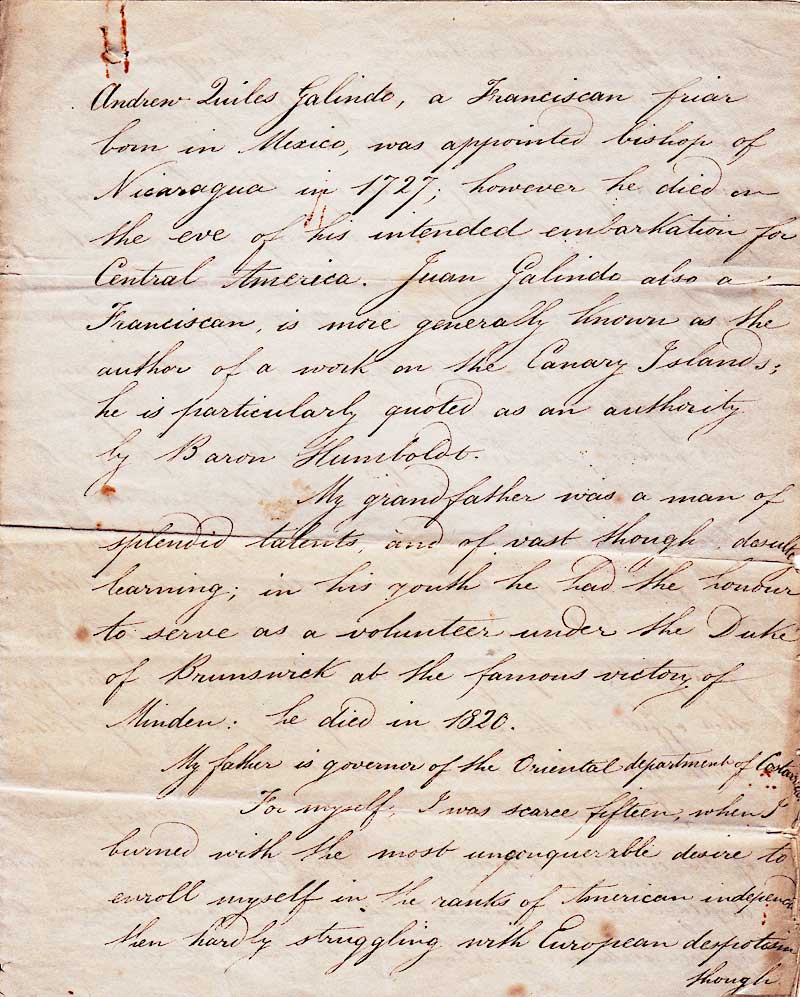 Andrew Quiles Galindo, a Franciscan friar
born in Mexico, was appointed bishop of
Nicaragua in 1727; however he died on
the eve of his intended embarkation for
Central America. Juan Galindo also a
Franciscan, is more generally known as the
author of a work on the Canary Islands;
he is particularly quoted as an authority
by Baron Humboldt.
My grandfather was a man of
splendid talents, and of vast though
learning; in his youth he had the honour
to serve as a volunteer under the Duke
of Brunswick at the famous victory of
Minden: he died in 1820.
My father is governor of the Oriental department of
For myself, I was scarce fifteen, when I
burned with the most unconquerable desire to
enroll myself in the ranks of American
then hardly struggling with European despotism
though